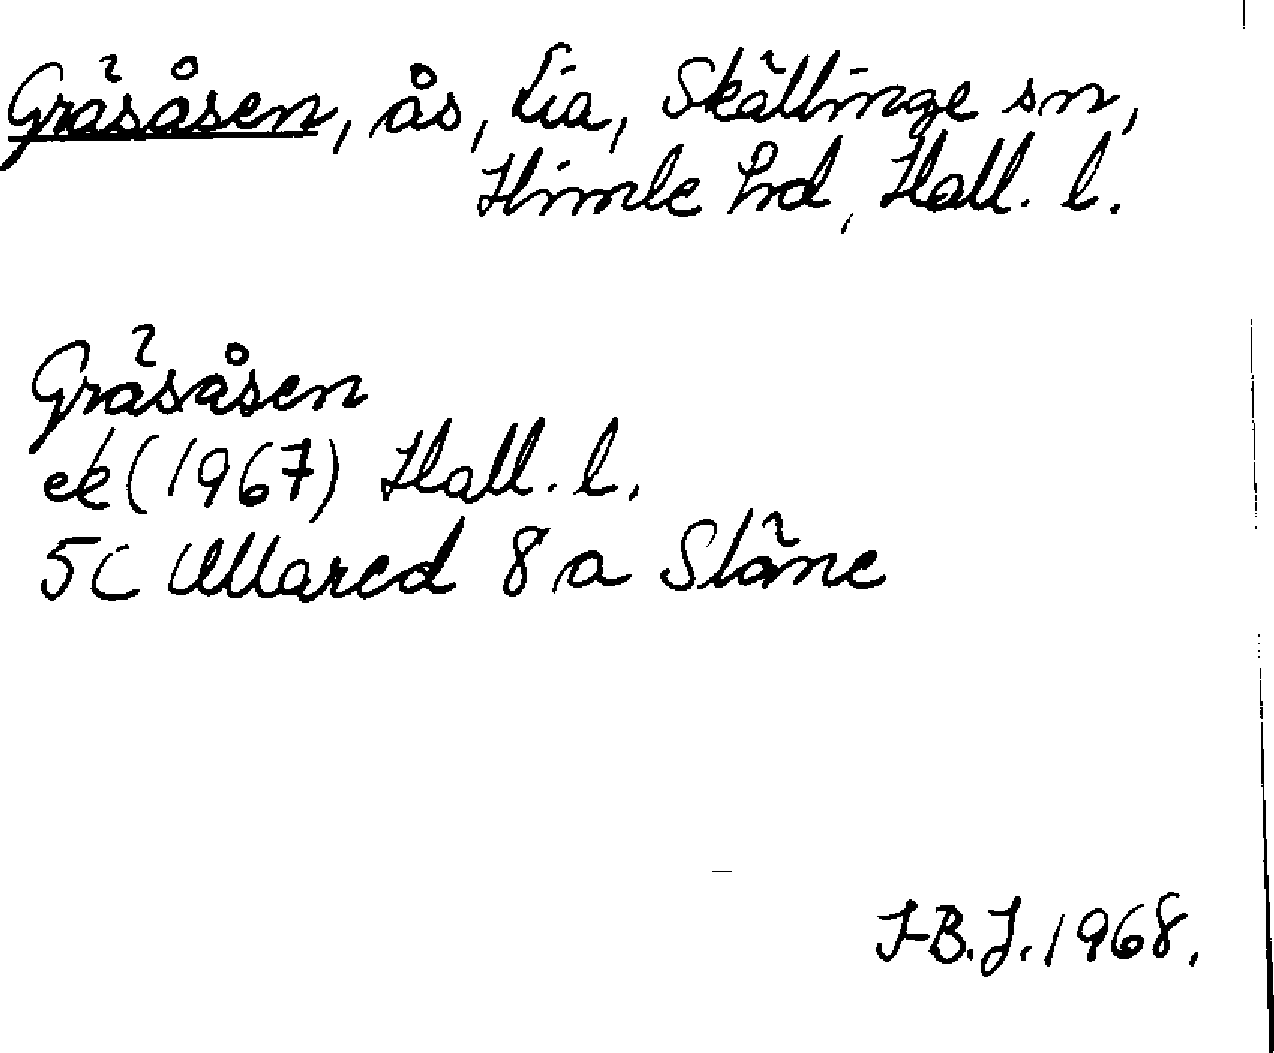 Gräsåsen, ås, Lia, Skällinge sn,
Himle hd, Hall. l.
Gräsåsen
ek (1967) Hall. l.
5C Ullared 8 a Släne
I-B.J. 1968.